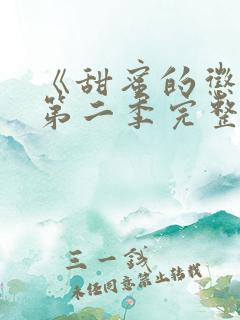 《甜蜜的懲
第二季完整
三一钱
未经同意禁止转载